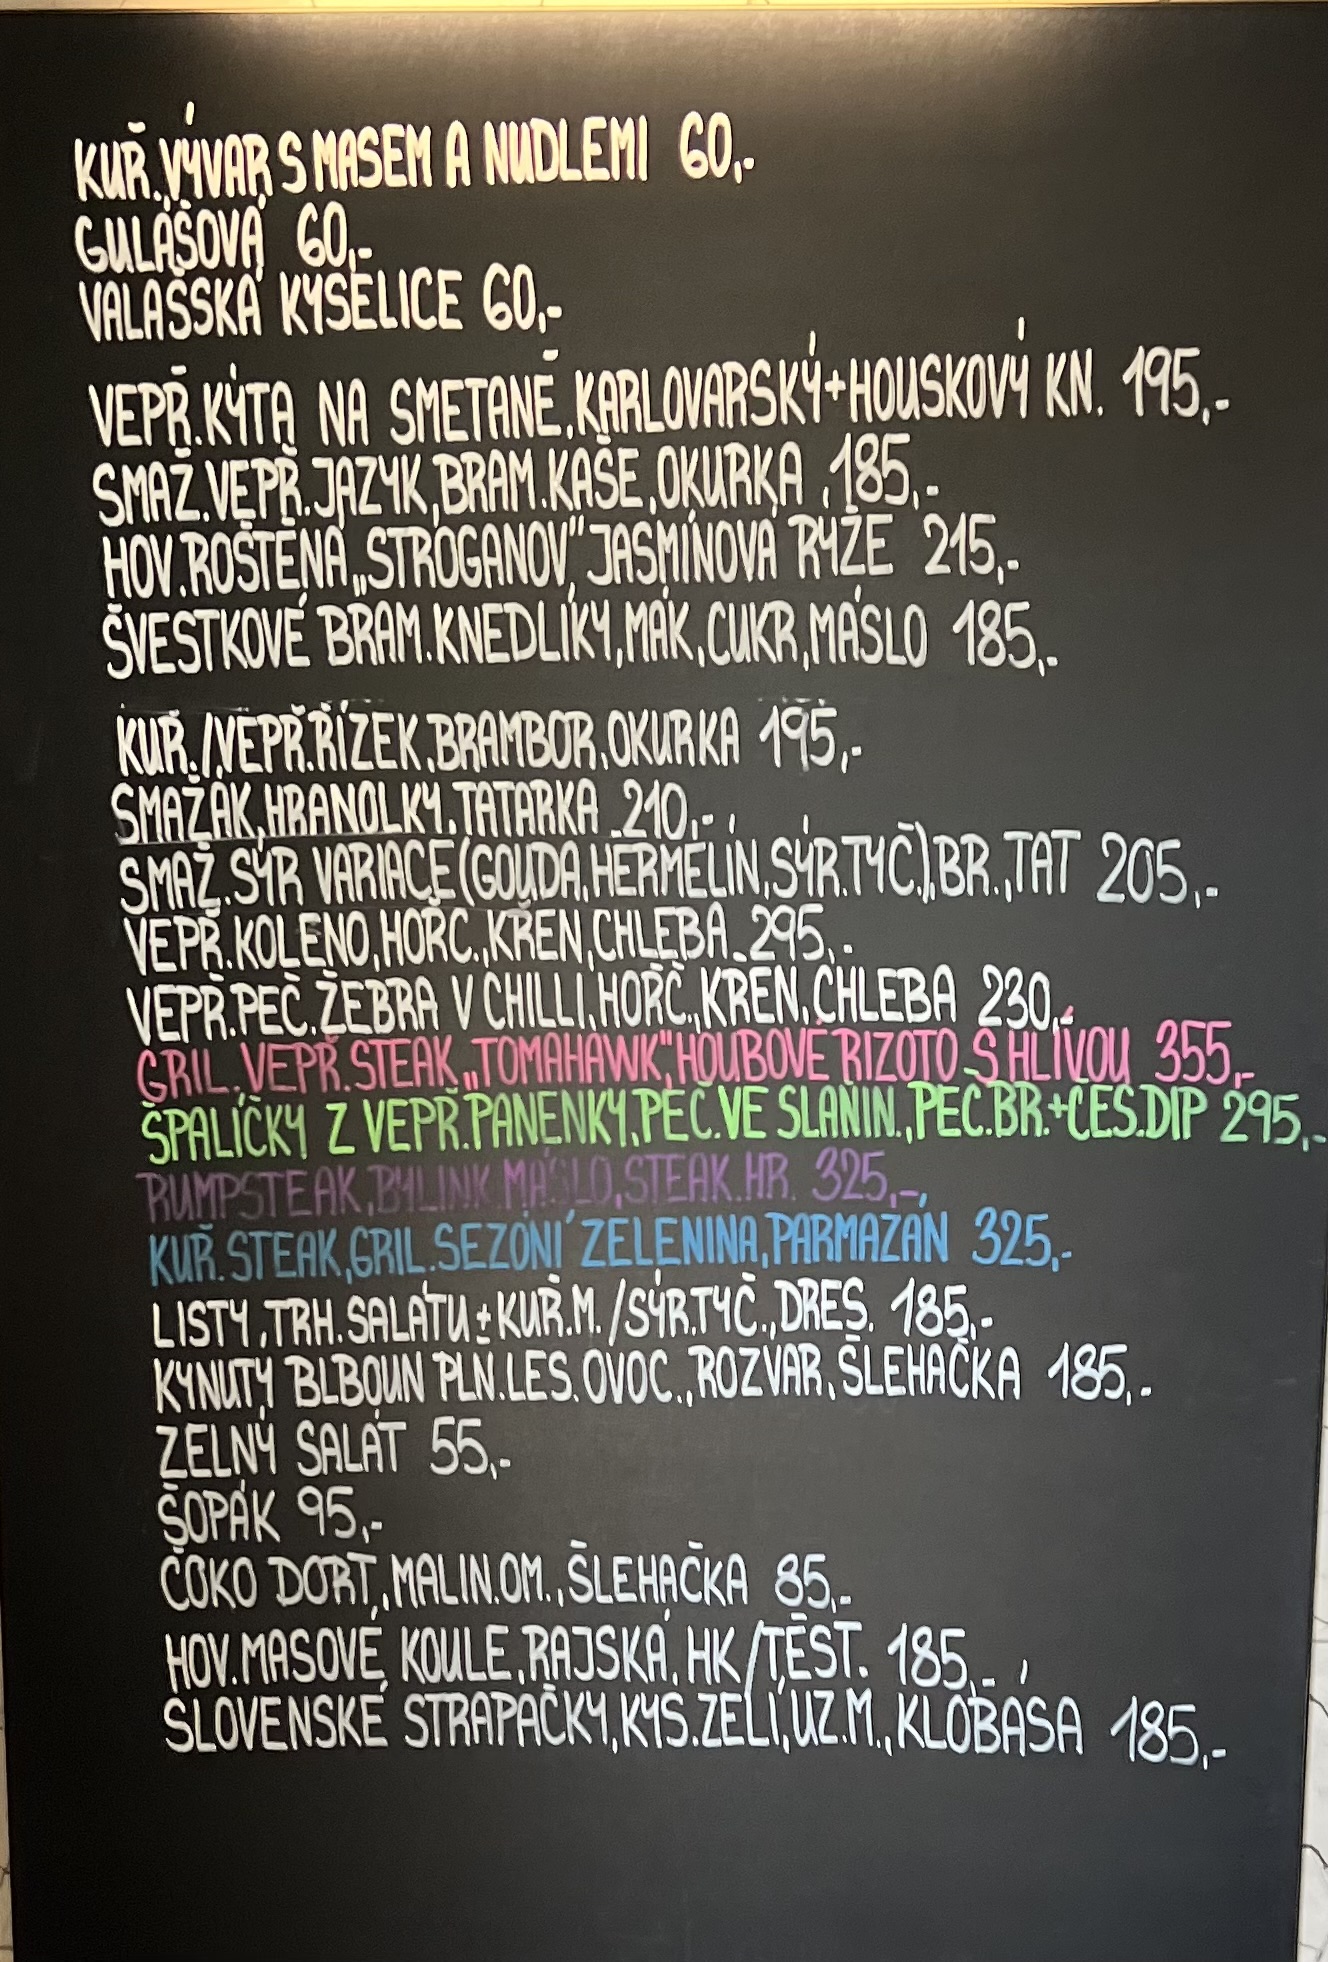 KUŘ.VÝVAR S MASEM A NUDLEMI 60,-
GULÁŠOVÁ 60,-
VALAŠSKÁ KYSELICE 60,-
VEPŘ.KÝTA NA SMETANĚ,KARLOVARSKÝ+HOUSKOVÝ KN. 195,-
SMAŽ.VEPŘ.JAZYK,BRAM.KAŠE,OKURKA 185,-
HOV.ROŠTĚNÁ„STROGANOV“,JASMÍNOVÁ RÝŽE 215,-
ŠVESTKOVÉ BRAM.KNEDLÍKY,MÁK,CUKR,MÁSLO 185,-
KUŘ./VEPŘ.ŘÍZEK,BRAMBOR,OKURKA 195,-
SMAŽÁK,HRANOLKY,TATARKA 210,-
SMAŽ.SÝR VARIACE(GOUDA,HERMELÍN,SÝR.TYČ.),BR.,TAT 205,-
VEPŘ.KOLENO,HOŘČ.,KŘEN,CHLEBA 295,-
VEPŘ.PEČ.ŽEBRA V CHILLI,HOŘČ.,KŘEN,CHLEBA 230,-
GRIL.VEPŘ.STEAK„TOMAHAWK“,HOUBOVÉ RIZOTO S HLÍVOU 355,-
ŠPALÍČKY Z VEPŘ.PANENKY,PEČ.VE SLANIN.,PEČ.BR.+ČES.DIP 295,-
RUMPSTEAK,BYLINK.MÁSLO,STEAK.HR. 325,-
KUŘ.STEAK,GRIL.SEZÓNÍ ZELENINA,PARMAZÁN 325,-
LISTY,TRH.SALÁTU±KUŘ.M./SÝR.TYČ.,DRES. 185,-
KYNUTÝ BLBOUN PLN.LES.OVOC.,ROZVAR,ŠLEHAČKA 185,-
ZELNÝ SALÁT 55,-
ŠOPÁK 95,-
ČOKO DORT,MALIN.OM.,ŠLEHAČKA 85,-
HOV.MASOVÉ KOULE,RAJSKÁ,HK/TĚST. 185,-
SLOVENSKÉ STRAPAČKY,KYS.ZELÍ,UZ.M.,KLOBÁSA 185,-